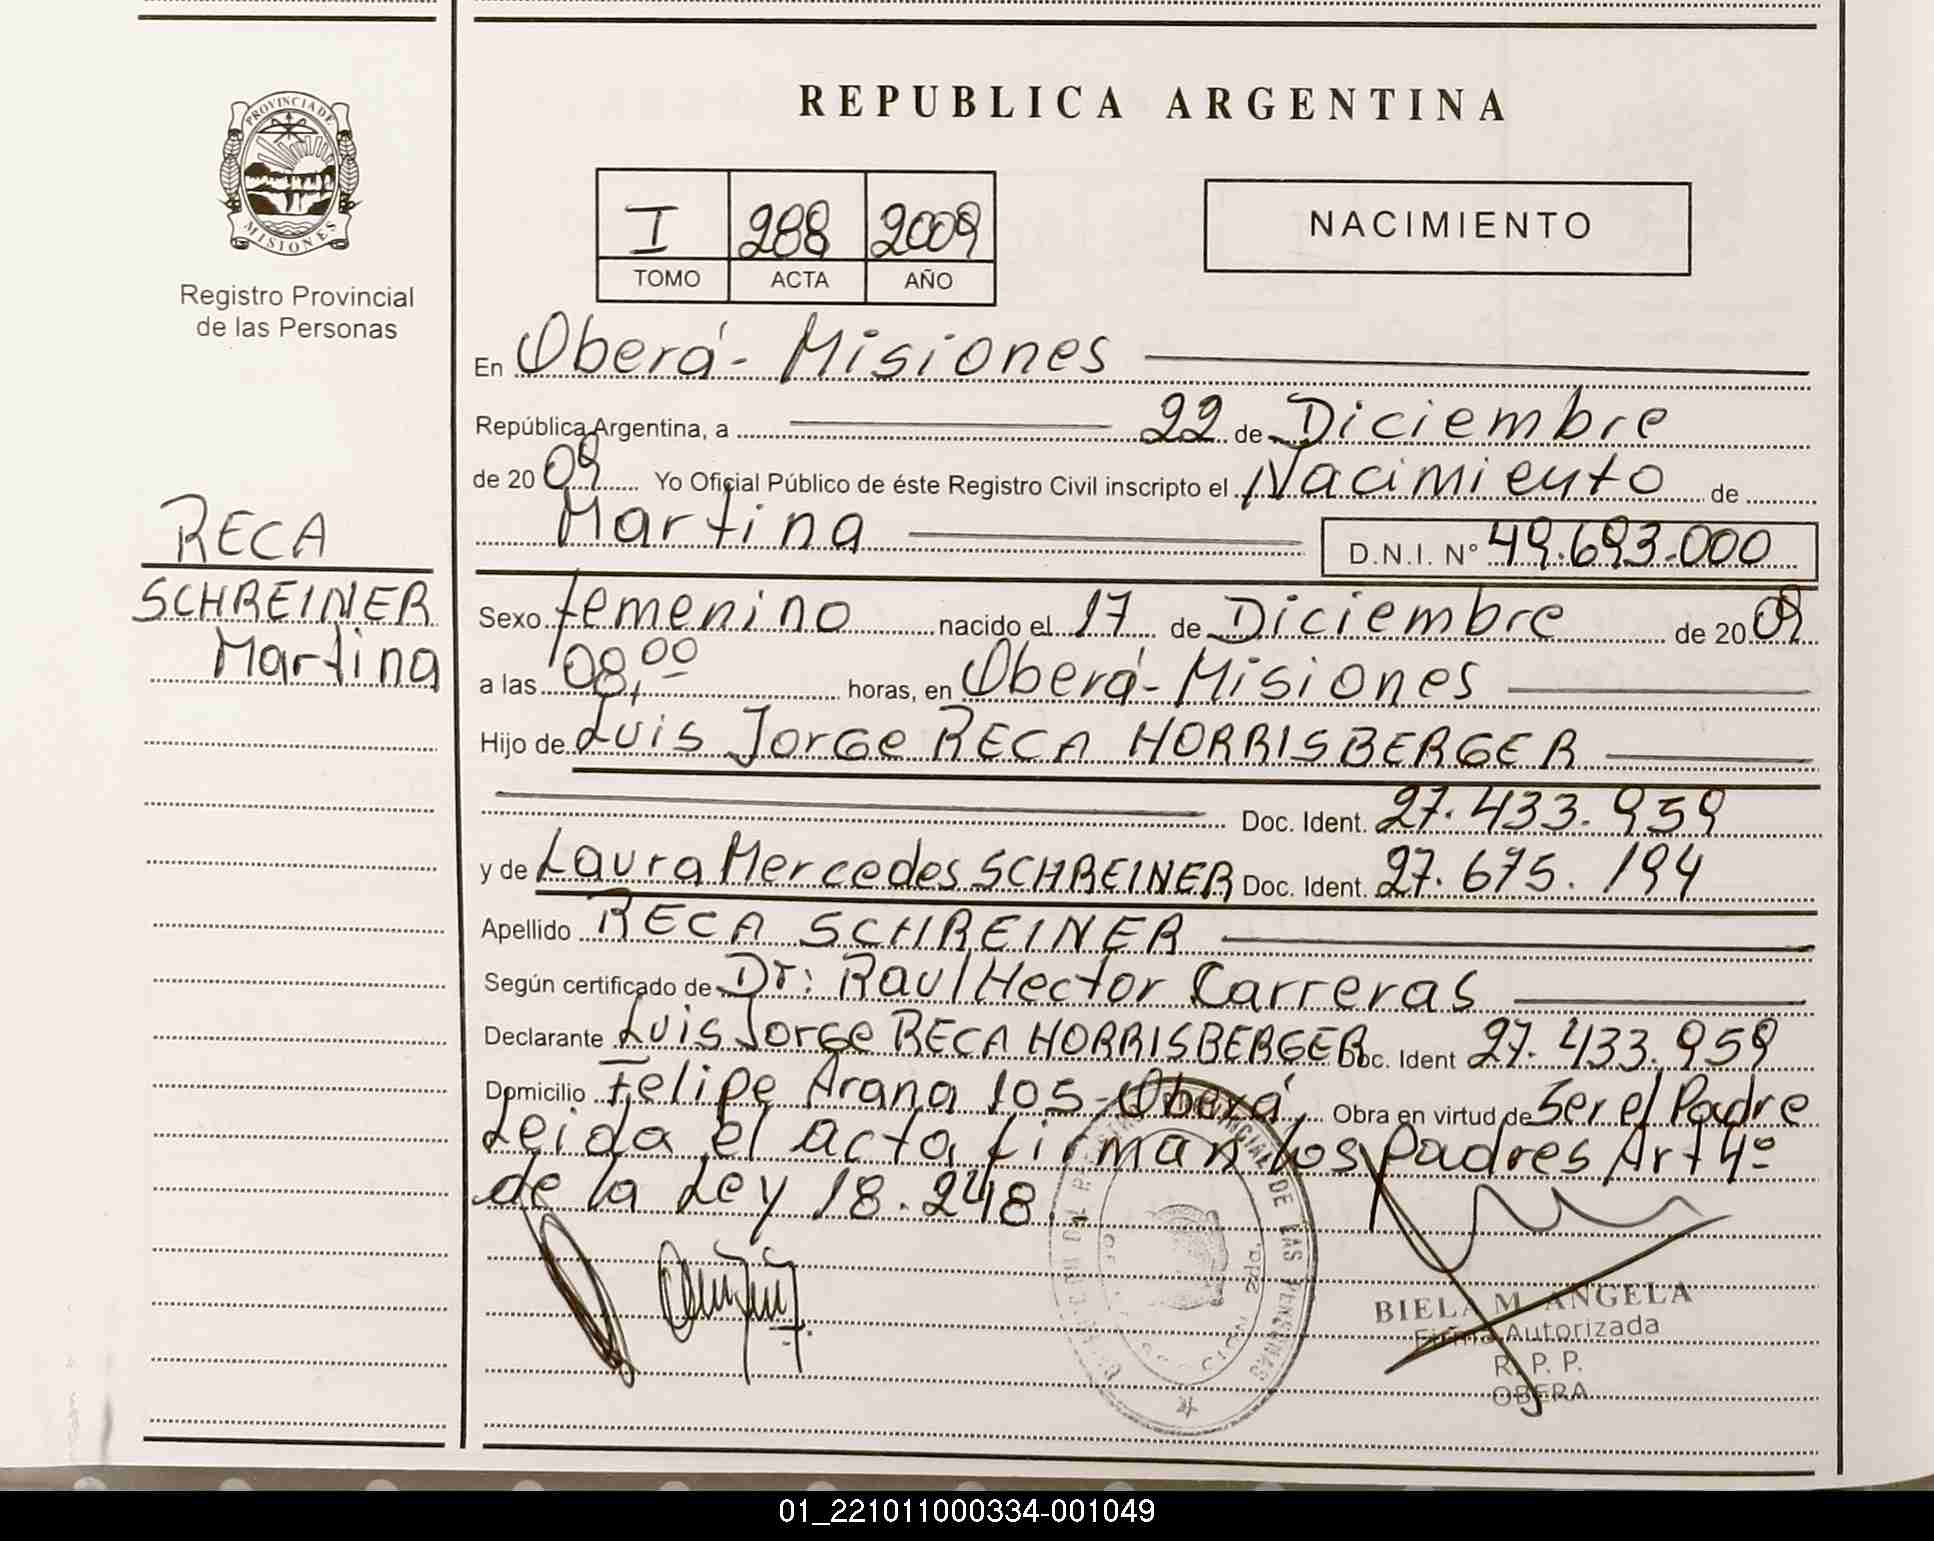 REPUBLICA ARGENTINA
PROVINCIA DE
MISIONES
Registro Provincial
de las Personas
I 288 2009
TOMO ACTA AÑO
NACIMIENTO
En Oberá - Misiones
República Argentina, a 22 de Diciembre
de 20 09 Yo Oficial Público de éste Registro Civil inscripto el Nacimiento de
Martina D.N.I. Nº 49.693.000
RECA
SCHREINER
Martina
Sexo femenino nacido el 17 de Diciembre de 20 09
a las 08,00 horas, en Oberá - Misiones
Hijo de Luis Jorge RECA HORRISBERGER
Doc. Ident. 27.433.959
y de Laura Mercedes SCHREINER Doc. Ident. 27.675.194
Apellido RECA SCHREINER
Según certificado de Dr: Raul Hector Carreras
Declarante Luis Jorge RECA HORRISBERGER Doc. Ident 27.433.959
Domicilio Felipe Arana 105 - Oberá Obra en virtud de Ser el Padre
Leida el acta, firman los Padres Art 4º
de la Ley 18.248.
DE LAS PERSONAS
BIELA M. ANGELA
Firma Autorizada
R. P. P.
OBERA
01_221011000334-001049